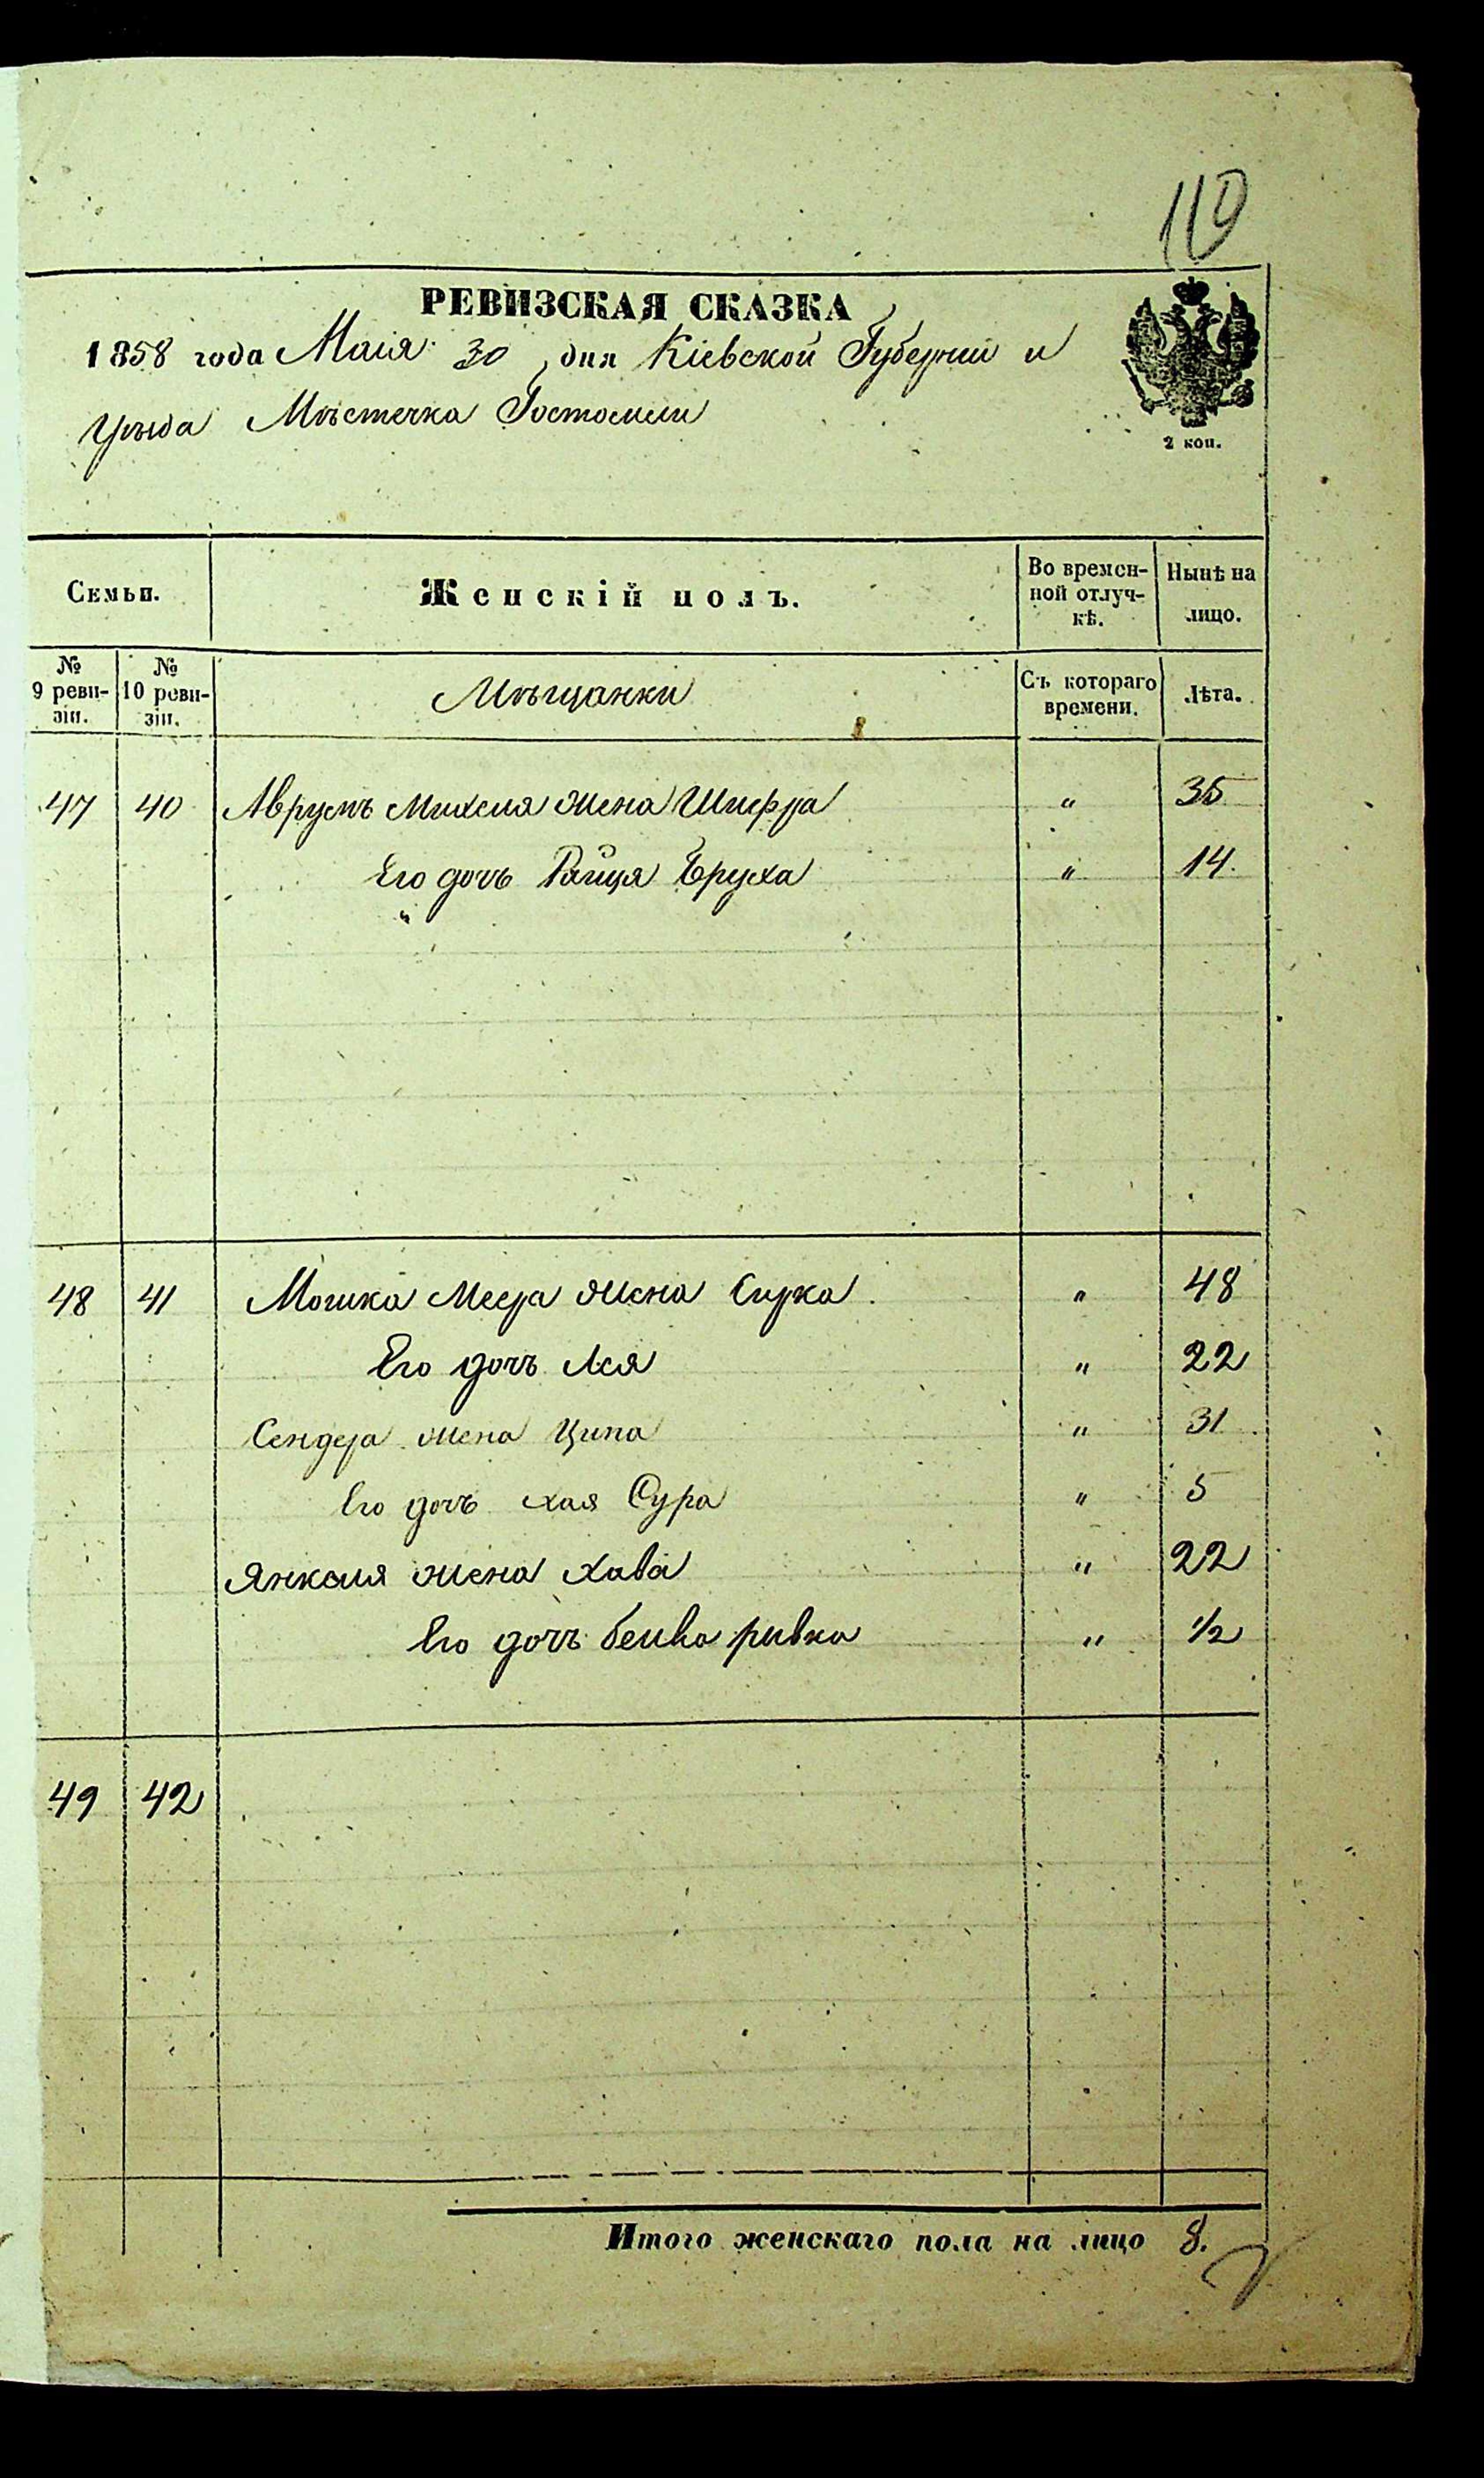 110
РЕВИЗСКАЯ СКАЗКА
1858 года Маія 30 дня Кіевской Губерніи и
Уѣзда Мѣстечка Гостомли
2 коп.
Семьи. Женскій полъ. Во времен-ной отлуч-кѣ. Нынѣ на лицо.
№ 9 реви-зіи. № 10 реви-зіи. Мѣщанки Съ котораго времени. Лѣта.
47 40 Аврумъ Михеля жена Шифра " 35
Его дочь Райця Бруха " 14.
48 41 Мошка Меера жена Сурка " 48
Его дочь Лея " 22
Сендера жена Ципа " 31
Его дочь хая Сура " 5
Янкеля жена Хава " 22
Его дочь бейла ривка " 1/2
49 42
Итого женскаго пола на лицо 8.